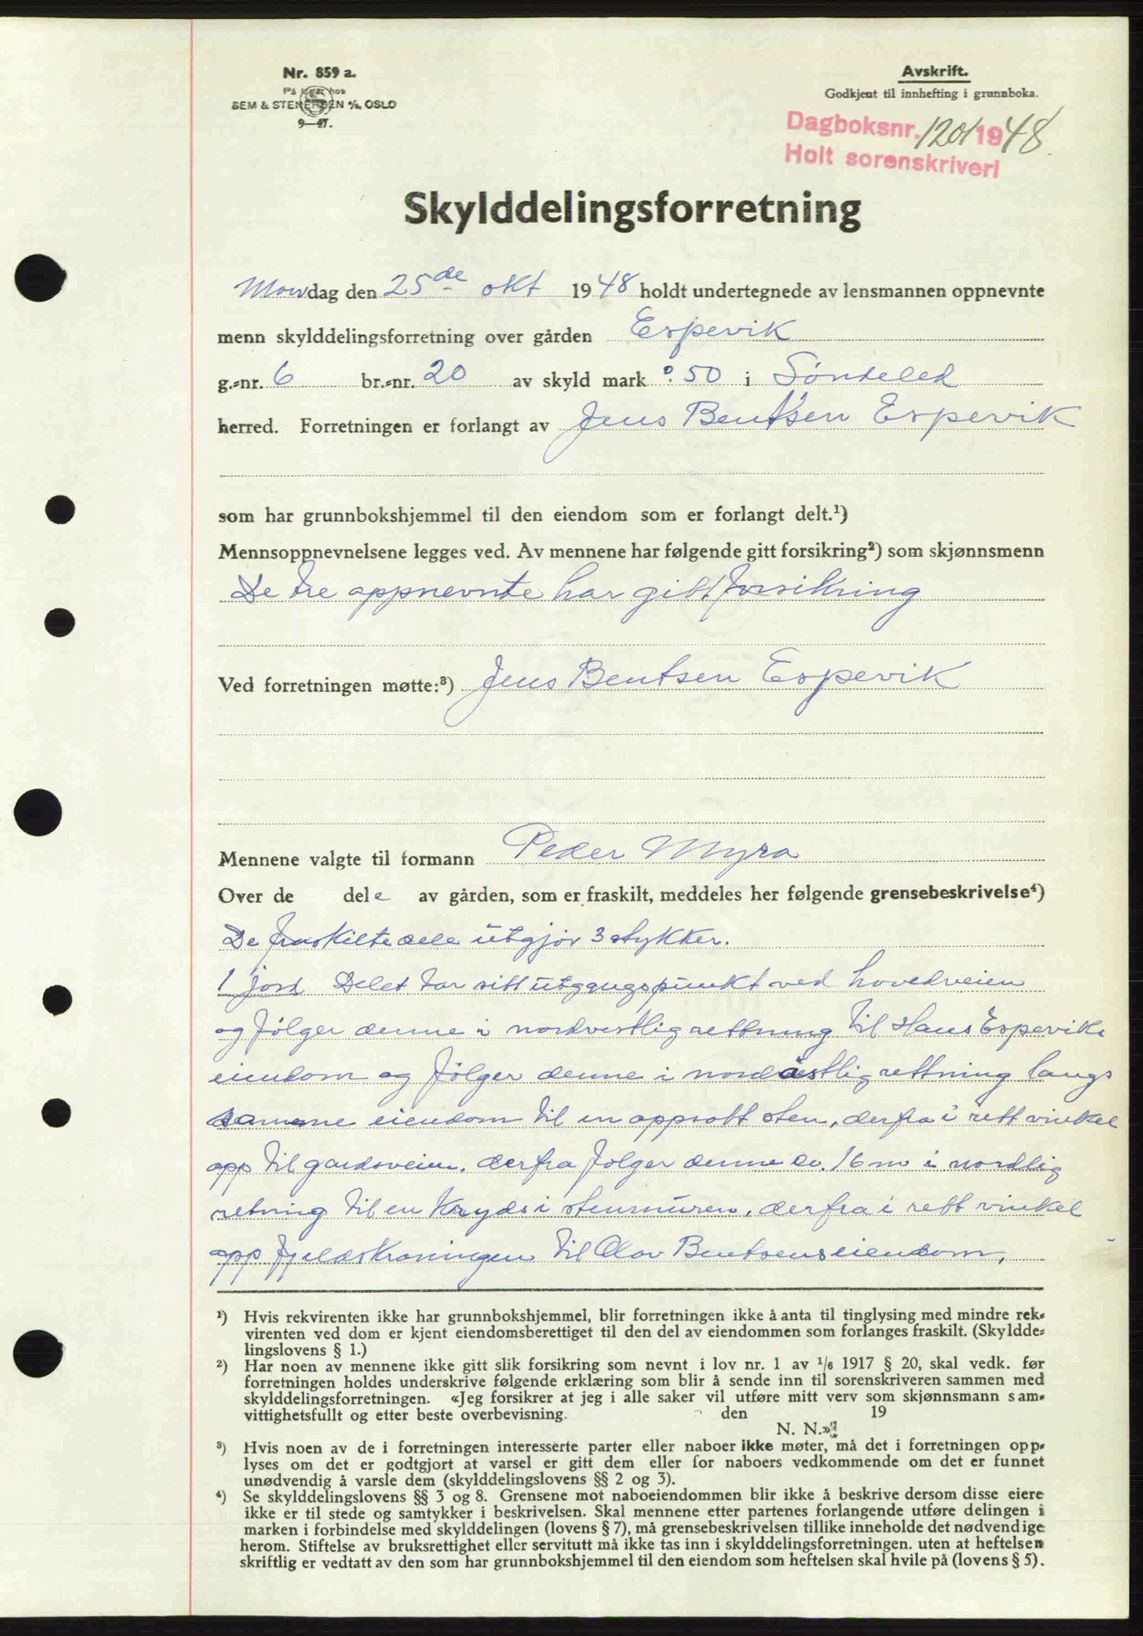 Nr. 859 a.
På lager hos
SEM & STENERSEN A/S, OSLO
9—47.
Avskrift.
Godkjent til innhefting i grunnboka.
Dagboksnr. 1201 1948
Holt sorenskriveri
Skylddelingsforretning
Mandag den 25de okt 1948 holdt undertegnede av lensmannen oppnevnte
menn skylddelingsforretning over gården Espevik
g.-nr. 6 br.-nr. 20 av skyld mark 0.50 i Söndeled
herred. Forretningen er forlangt av Jens Bentsen Espevik
som har grunnbokshjemmel til den eiendom som er forlangt delt.¹)
Mennsoppnevnelsene legges ved. Av mennene har følgende gitt forsikring²) som skjønnsmenn
De tre oppnevnte har gitt forsikring
Ved forretningen møtte:³) Jens Bentsen Espevik
Mennene valgte til formann Peder Myra
Over de dele av gården, som er fraskilt, meddeles her følgende grensebeskrivelse⁴)
De fraskilte dele utgjör 3 stykker.
1 jord Delet tar sitt utgangspunkt ved hovedveien
og følger denne i nordvestlig rettning til Hans Espeviks
eiendom og følger denne i nordöstlig rettning langs
samme eiendom til en oppsatt sten, derfra i rett vinkel
opp til gardsveien, derfra følger denne ca. 16 m i nordlig
retning til en kryds i stenmuren, derfra i rett vinkel
opp fjeldskråningen til Olav Bentsens eiendom,
¹) Hvis rekvirenten ikke har grunnbokshjemmel, blir forretningen ikke å anta til tinglysing med mindre rek-
virenten ved dom er kjent eiendomsberettiget til den del av eiendommen som forlanges fraskilt. (Skyldde-
lingslovens § 1.)
²) Har noen av mennene ikke gitt slik forsikring som nevnt i lov nr. 1 av ¹/₆ 1917 § 20, skal vedk. før
forretningen holdes underskrive følgende erklæring som blir å sende inn til sorenskriveren sammen med
skylddelingsforretningen. «Jeg forsikrer at jeg i alle saker vil utføre mitt verv som skjønnsmann sam-
vittighetsfullt og etter beste overbevisning. den 19
N. N.»
³) Hvis noen av de i forretningen interesserte parter eller naboer ikke møter, må det i forretningen opp-
lyses om det er godtgjort at varsel er gitt dem eller for naboers vedkommende om det er funnet
unødvendig å varsle dem (skylddelingslovens §§ 2 og 3).
⁴) Se skylddelingslovens §§ 3 og 8. Grensene mot naboeiendommen blir ikke å beskrive dersom disse eiere
ikke er til stede og samtykker i beskrivelsen. Skal mennene etter partenes forlangende utføre delingen i
marken i forbindelse med skylddelingen (lovens § 7), må grensebeskrivelsen tillike inneholde det nødvendige
herom. Stiftelse av bruksrettighet eller servitutt må ikke tas inn i skylddelingsforretningen, uten at heftelsen
skriftlig er vedtatt av den som har grunnbokshjemmel til den eiendom som heftelsen skal hvile på (lovens § 5).